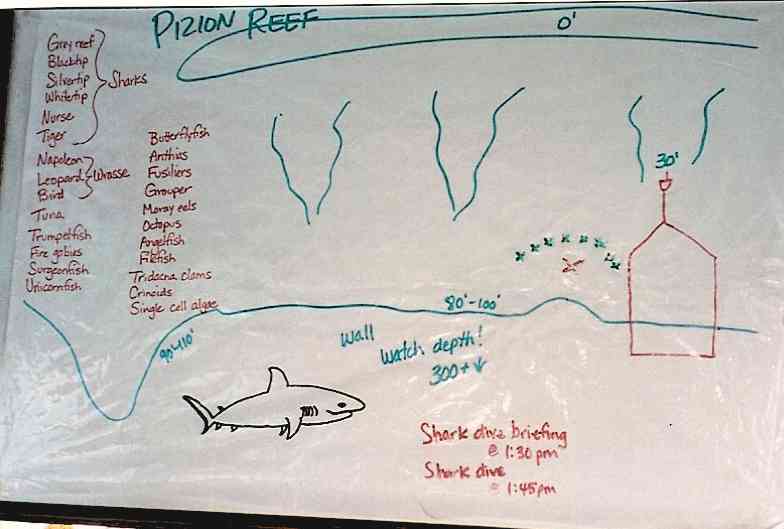 PIZION REEF
0'
Grey reef
Blacktip
Silvertip
Whitetip
Nurse
Tiger
Sharks
Napoleon
Leopard
Bird
Wrasse
Tuna
Trumpetfish
Fire gobies
Surgeonfish
Unicornfish
Butterflyfish
Anthias
Fusiliers
Grouper
Moray eels
Octopus
Angelfish
Filefish
Tridacna clams
Crinoids
Single cell algae
30'
80'-100'
90'-110'
Wall
Watch depth!
300+ ↓
Shark dive briefing
@ 1:30 pm
Shark dive
@ 1:45pm